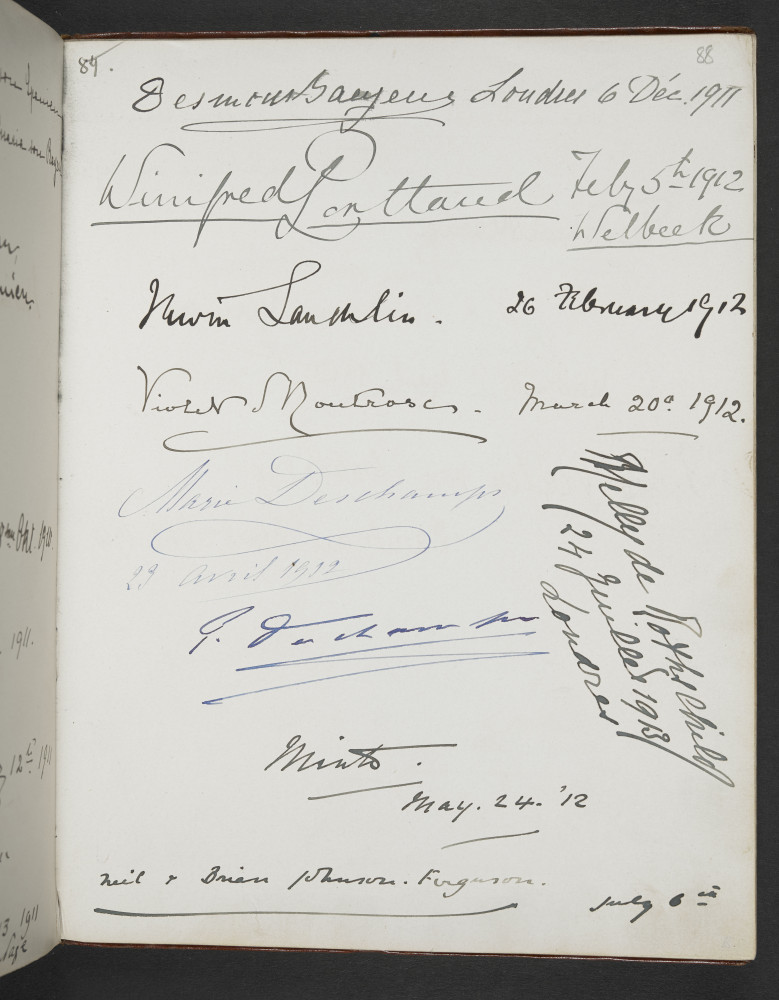 84.
88
Londres 6 Déc. 1911
Winifred Portland Feby 5th 1912
Welbeck
Irwin Laughlin. 26 February 1912
Violet Montrose. March 20th 1912.
Marie Deschamps
23 avril 1912
P. Deschamps
Melly de Rothschild
24 Juillet 1913
Londres
Minto.
May. 24. '12
Neil & Brian Johnson. Ferguson.
July 6th
1911.
12th 1911
3 1911